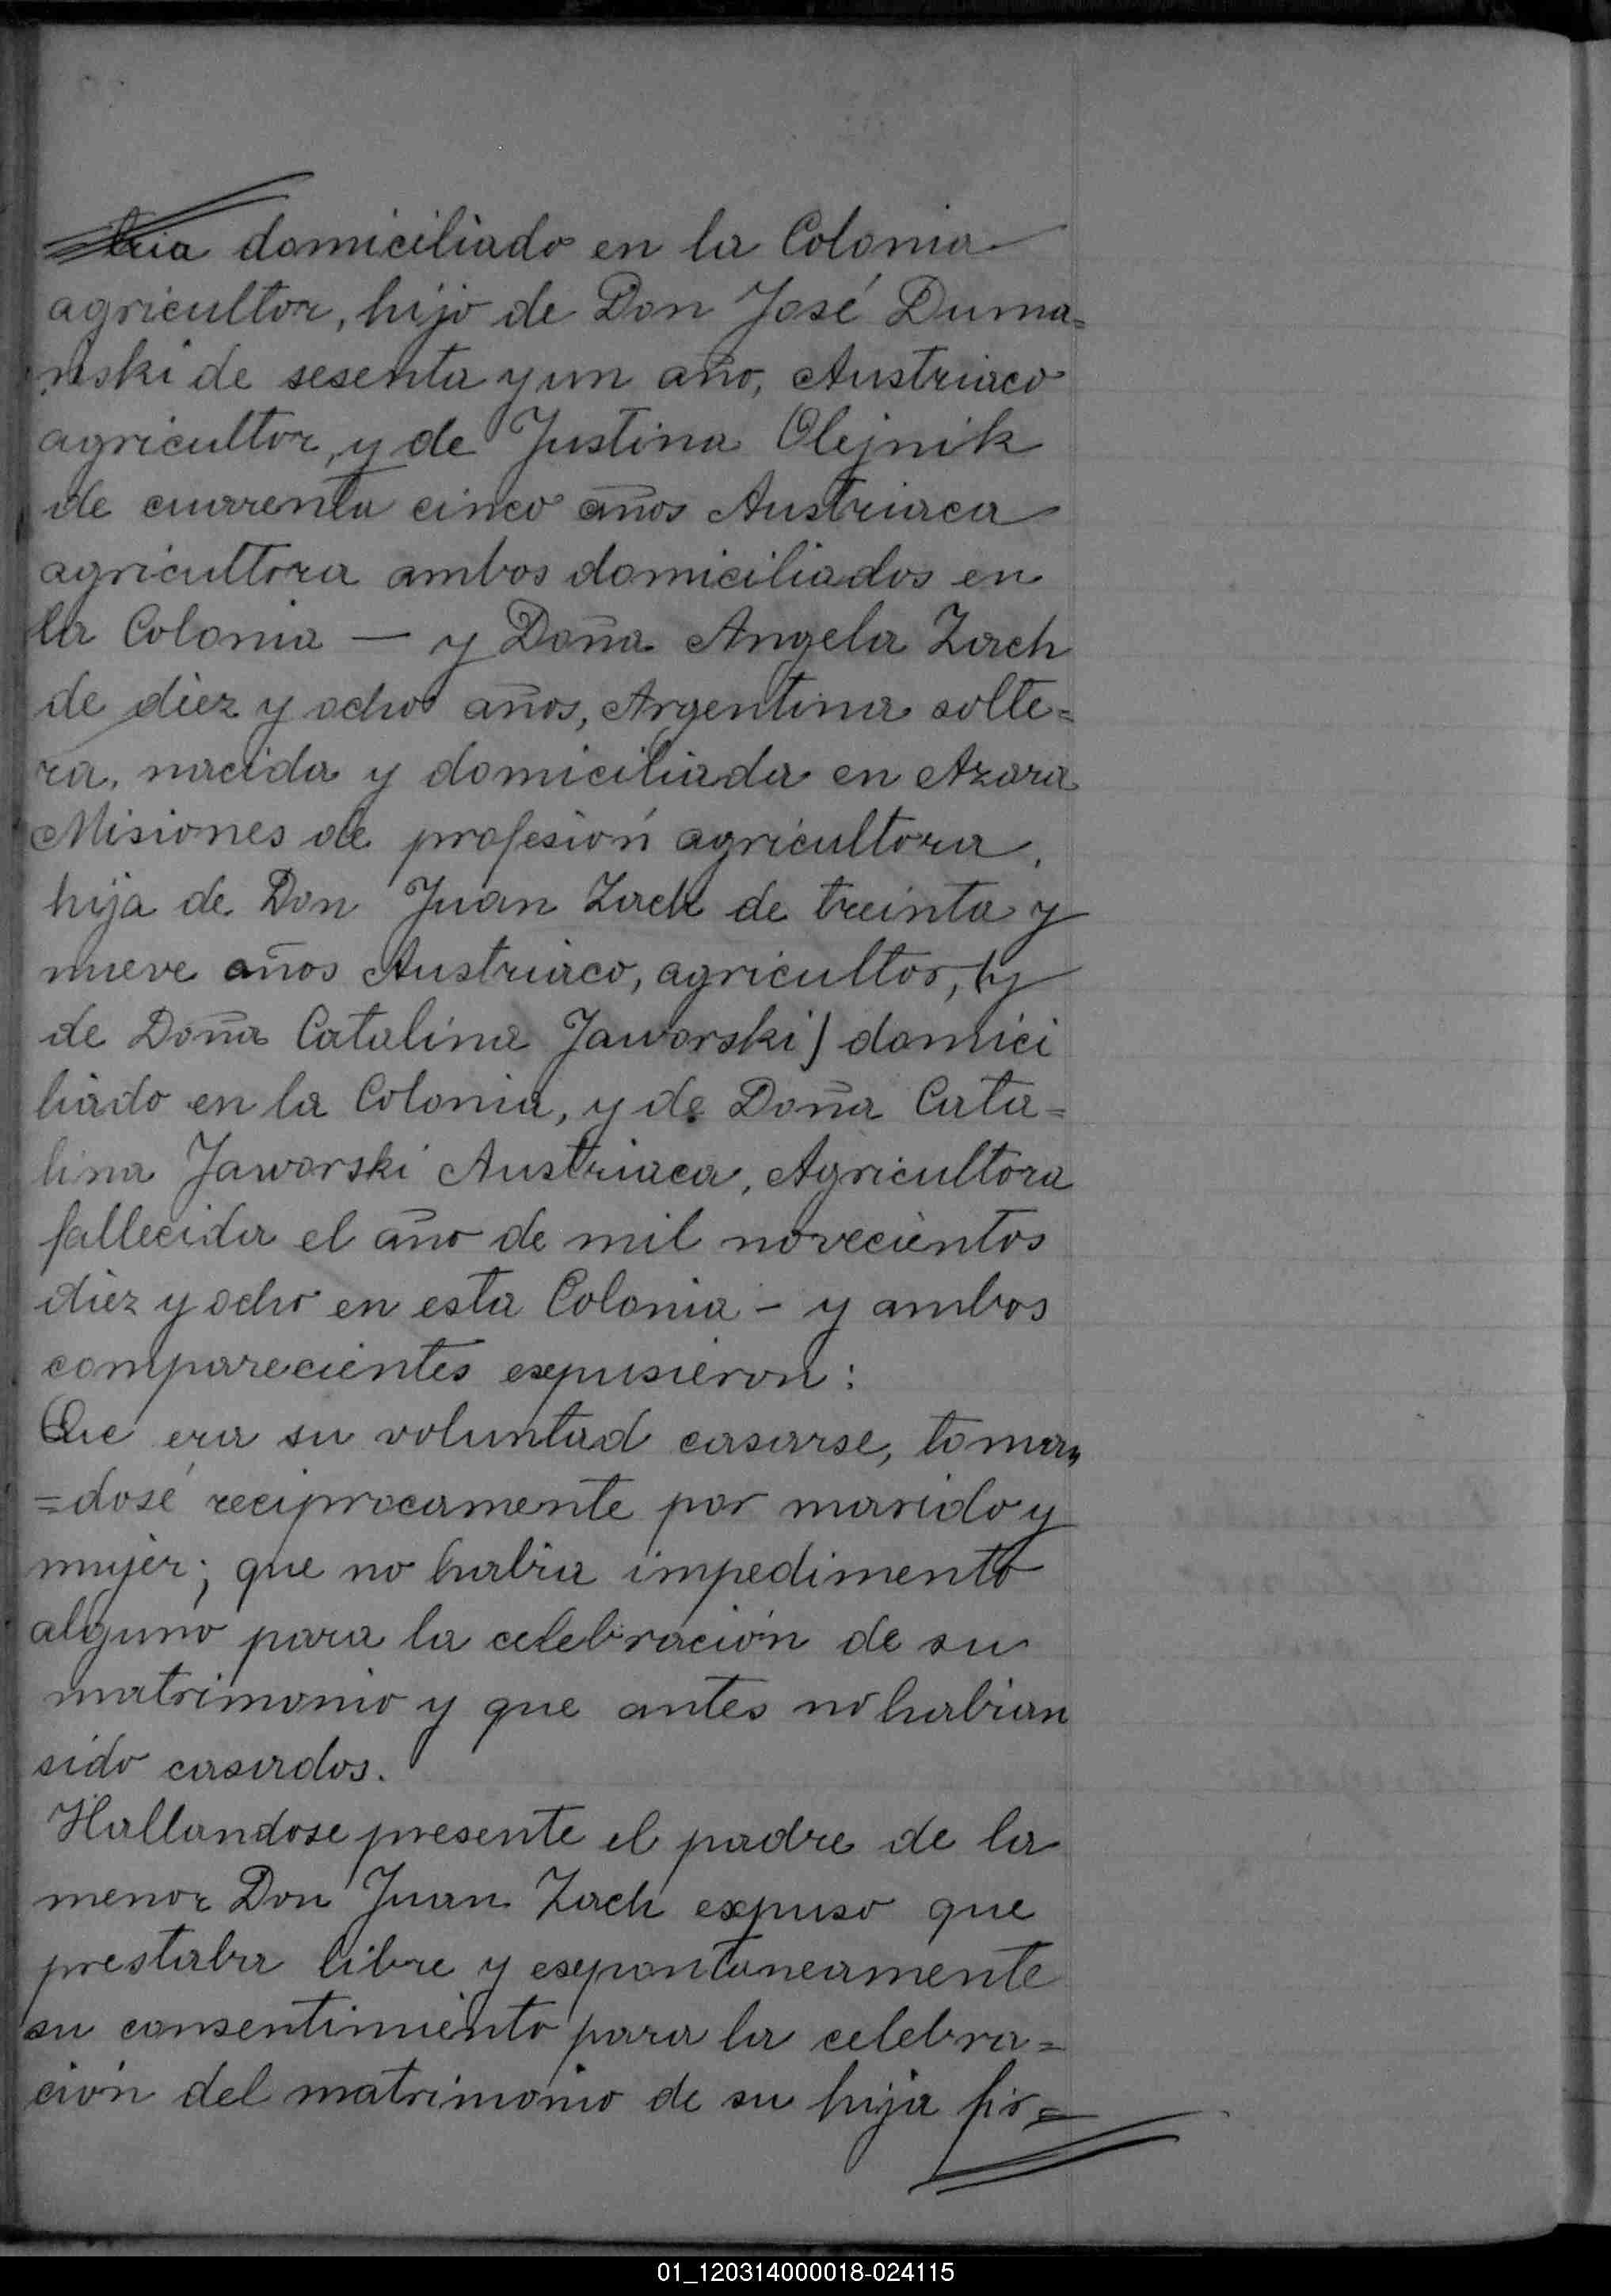 tria domiciliado en la Colonia
agricultor, hijo de Don José Duma=
nski de sesenta y un año, Austriaco
agricultor, y de Justina Olejnik
de cuarenta cinco años Austriaca
agricultora ambos domiciliados en
la Colonia — y Doña Angela Zach
de diez y ocho años, Argentina solte=
ra, nacida y domiciliada en Azara
Misiones de profesión agricultora,
hija de Don Juan Zach de treinta y
nueve años Austriaco, agricultor, (y
de Doña Catalina Jaworski) domici
liado en la Colonia, y de Doña Cata=
lina Jaworski Austriaca, Agricultora
fallecida el año de mil novecientos
diez y ocho en esta Colonia - y ambos
comparecientes expusieron:
Que era su voluntad casarse, toman
=dosé reciprocamente por marido y
mujer; que no habia impedimento
alguno para la celebración de su
matrimonio y que antes no habian
sido casados.
Hallandose presente el padre de la
menor Don Juan Zach expuso que
prestaba libre y expontaneamente
su consentimiento para la celebra=
ción del matrimonio de su hija fir=
01_120314000018-024115